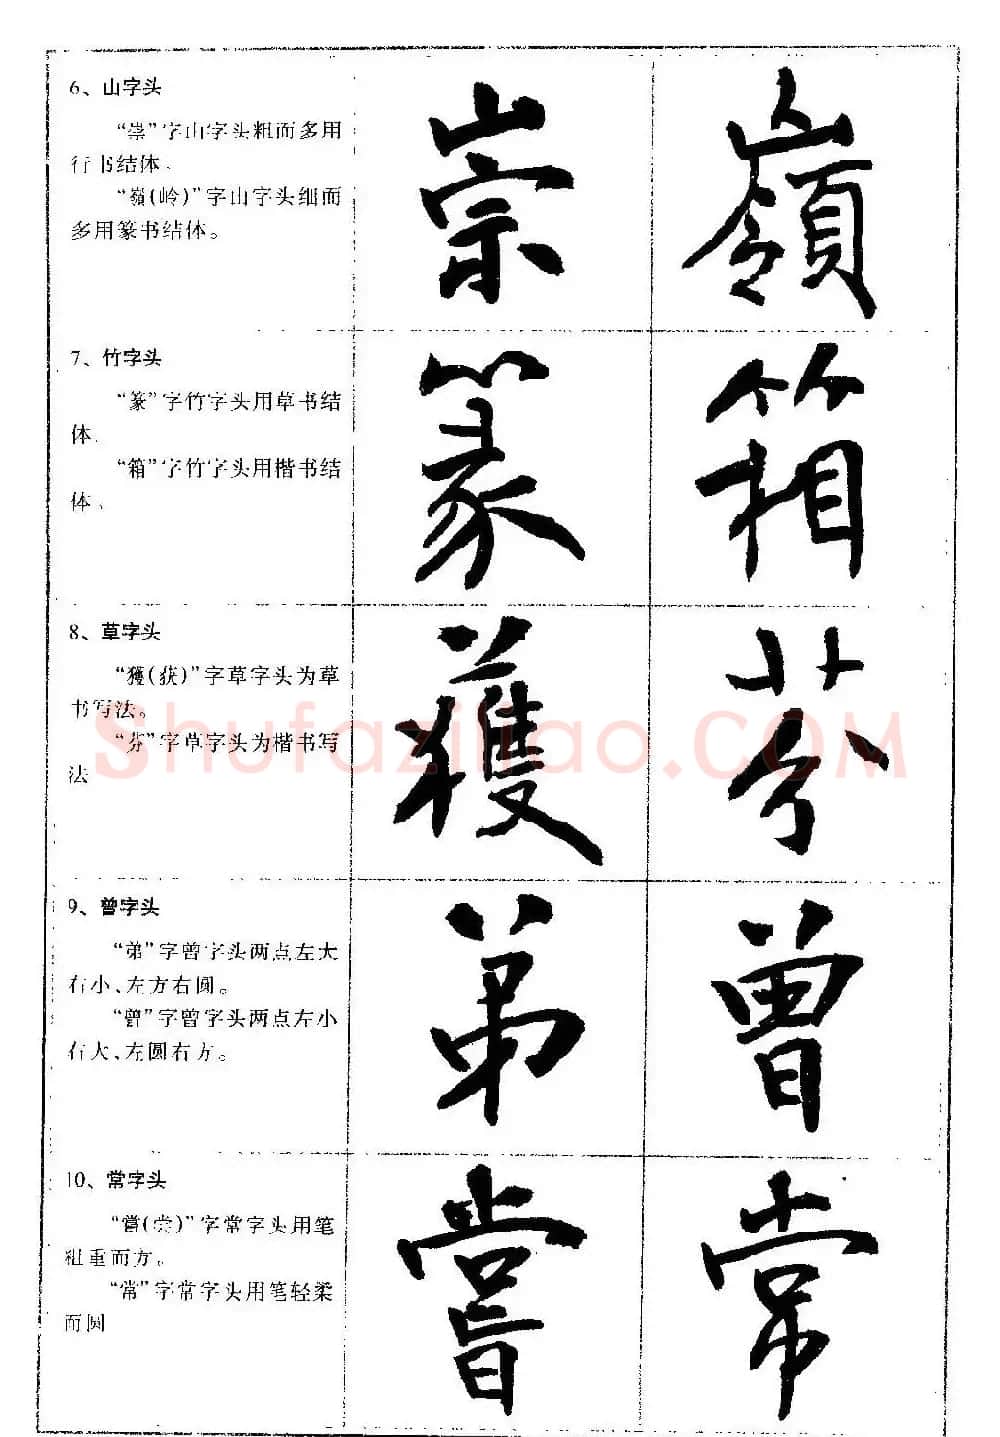 6、山字头
“崇”字山字头粗而多用
行书结体。
“嶺(岭)”字山字头细而
多用篆书结体。
崇 嶺
7、竹字头
“篆”字竹字头用草书结
体。
“箱”字竹字头用楷书结
体。
篆 箱
8、草字头
“獲(获)”字草字头为草
书写法。
“芬”字草字头为楷书写
法
獲 芬
Shufaziliao.COM
9、曾字头
“弟”字曾字头两点左大
右小、左方右圆。
“曾”字曾字头两点左小
右大、左圆右方。
弟 曾
10、常字头
“嘗(尝)”字常字头用笔
粗重而方。
“常”字常字头用笔轻柔
而圆
嘗 常